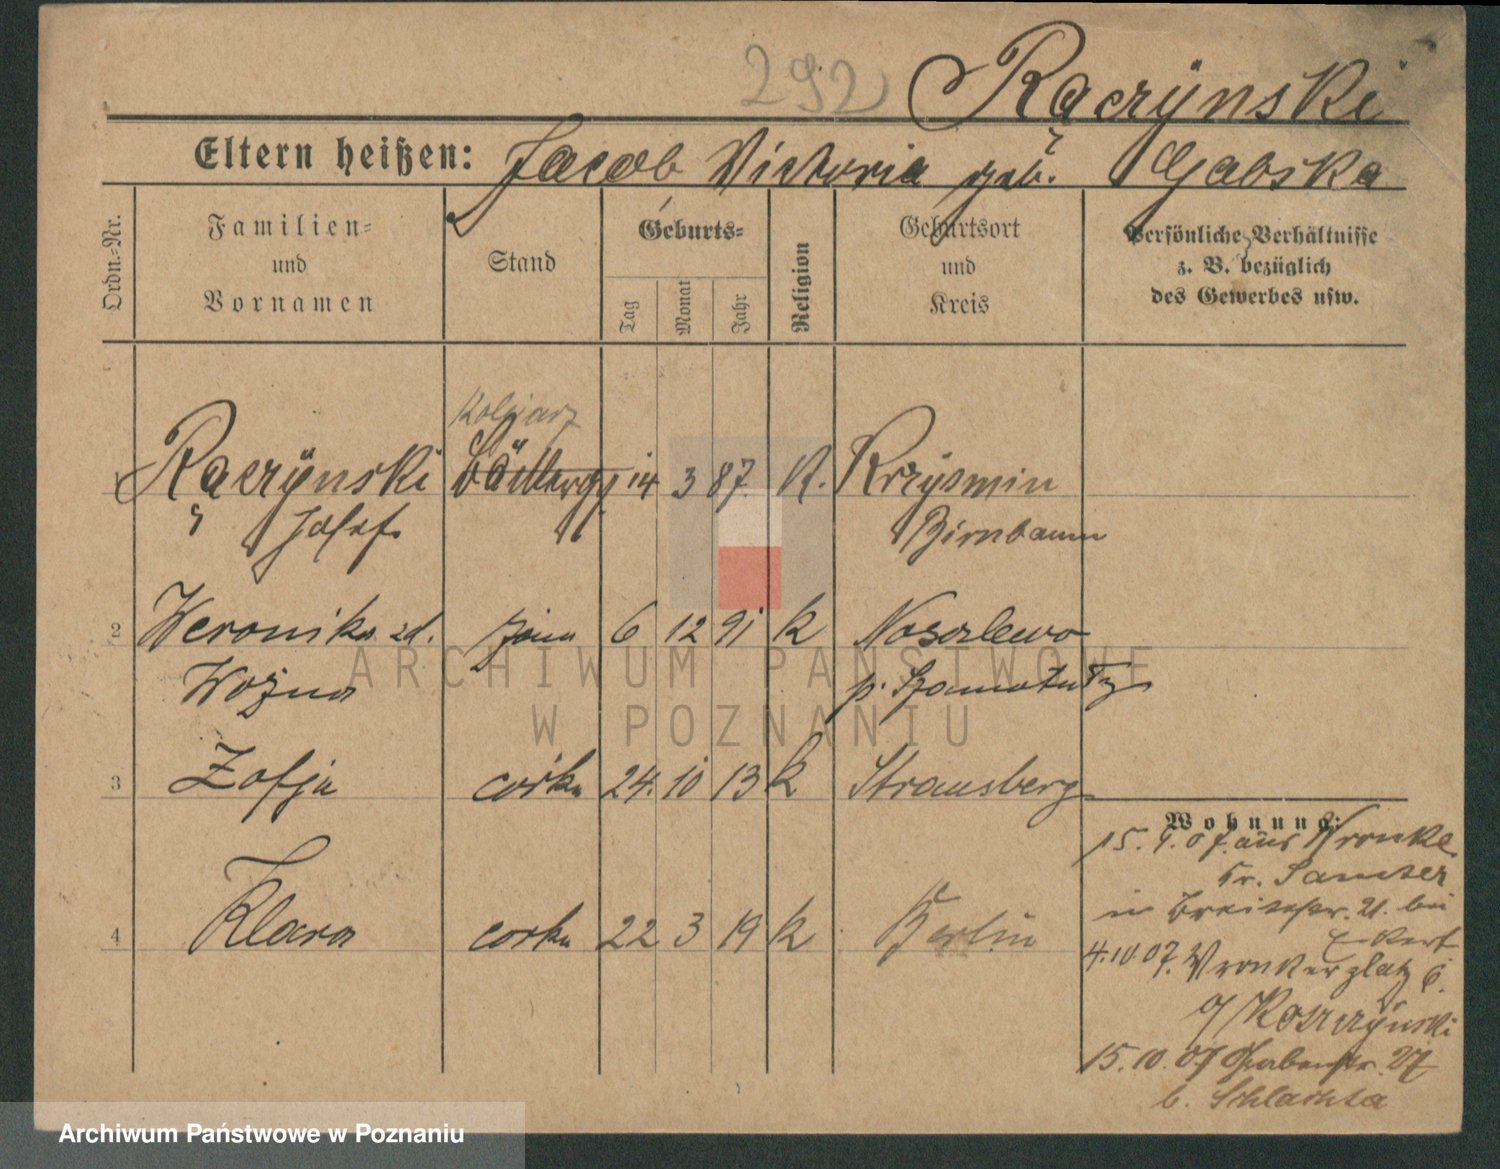 292 Raczÿnski
Eltern heißen: Jacob Victoria geb. Gabska
Ordn.-Nr.
Familien-
und
Vornamen
Stand
Geburts-
Tag
Monat
Jahr
Religion
Geburtsort
und
Kreis
Persönliche Verhältnisse
z. B. bezüglich
des Gewerbes usw.
kolejarz
1 Raczÿnski 14 3 87. K. Krzysmin
Josef Birnbaum
2 Weronika zd. żona 6 12 91 k Noszlewo
Woźna p. Szamotuły
3 Zofja córka 24. 10 13 k Strausberg
4 Klara corka 22 3 19 k Berlin
Wohnung:
15. 9. 07. aus Wronke
Kr. Samter
in Breitestr. 21. bei
Eckert
4.10.07. Wronkerplatz 6.
15.10.07 Grabenstr. 27
b. Schlachta
ARCHIWUM PAŃSTWOWE
W POZNANIU
Archiwum Państwowe w Poznaniu